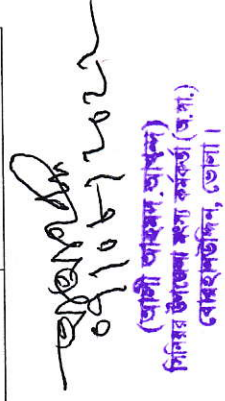 ০৭/০৮/২০২২
(আলী আহমদ আখন্দ)
সিনিয়র উপজেলা মৎস্য কর্মকর্তা (অ.দা.)
বোরহানউদ্দিন, ভোলা।